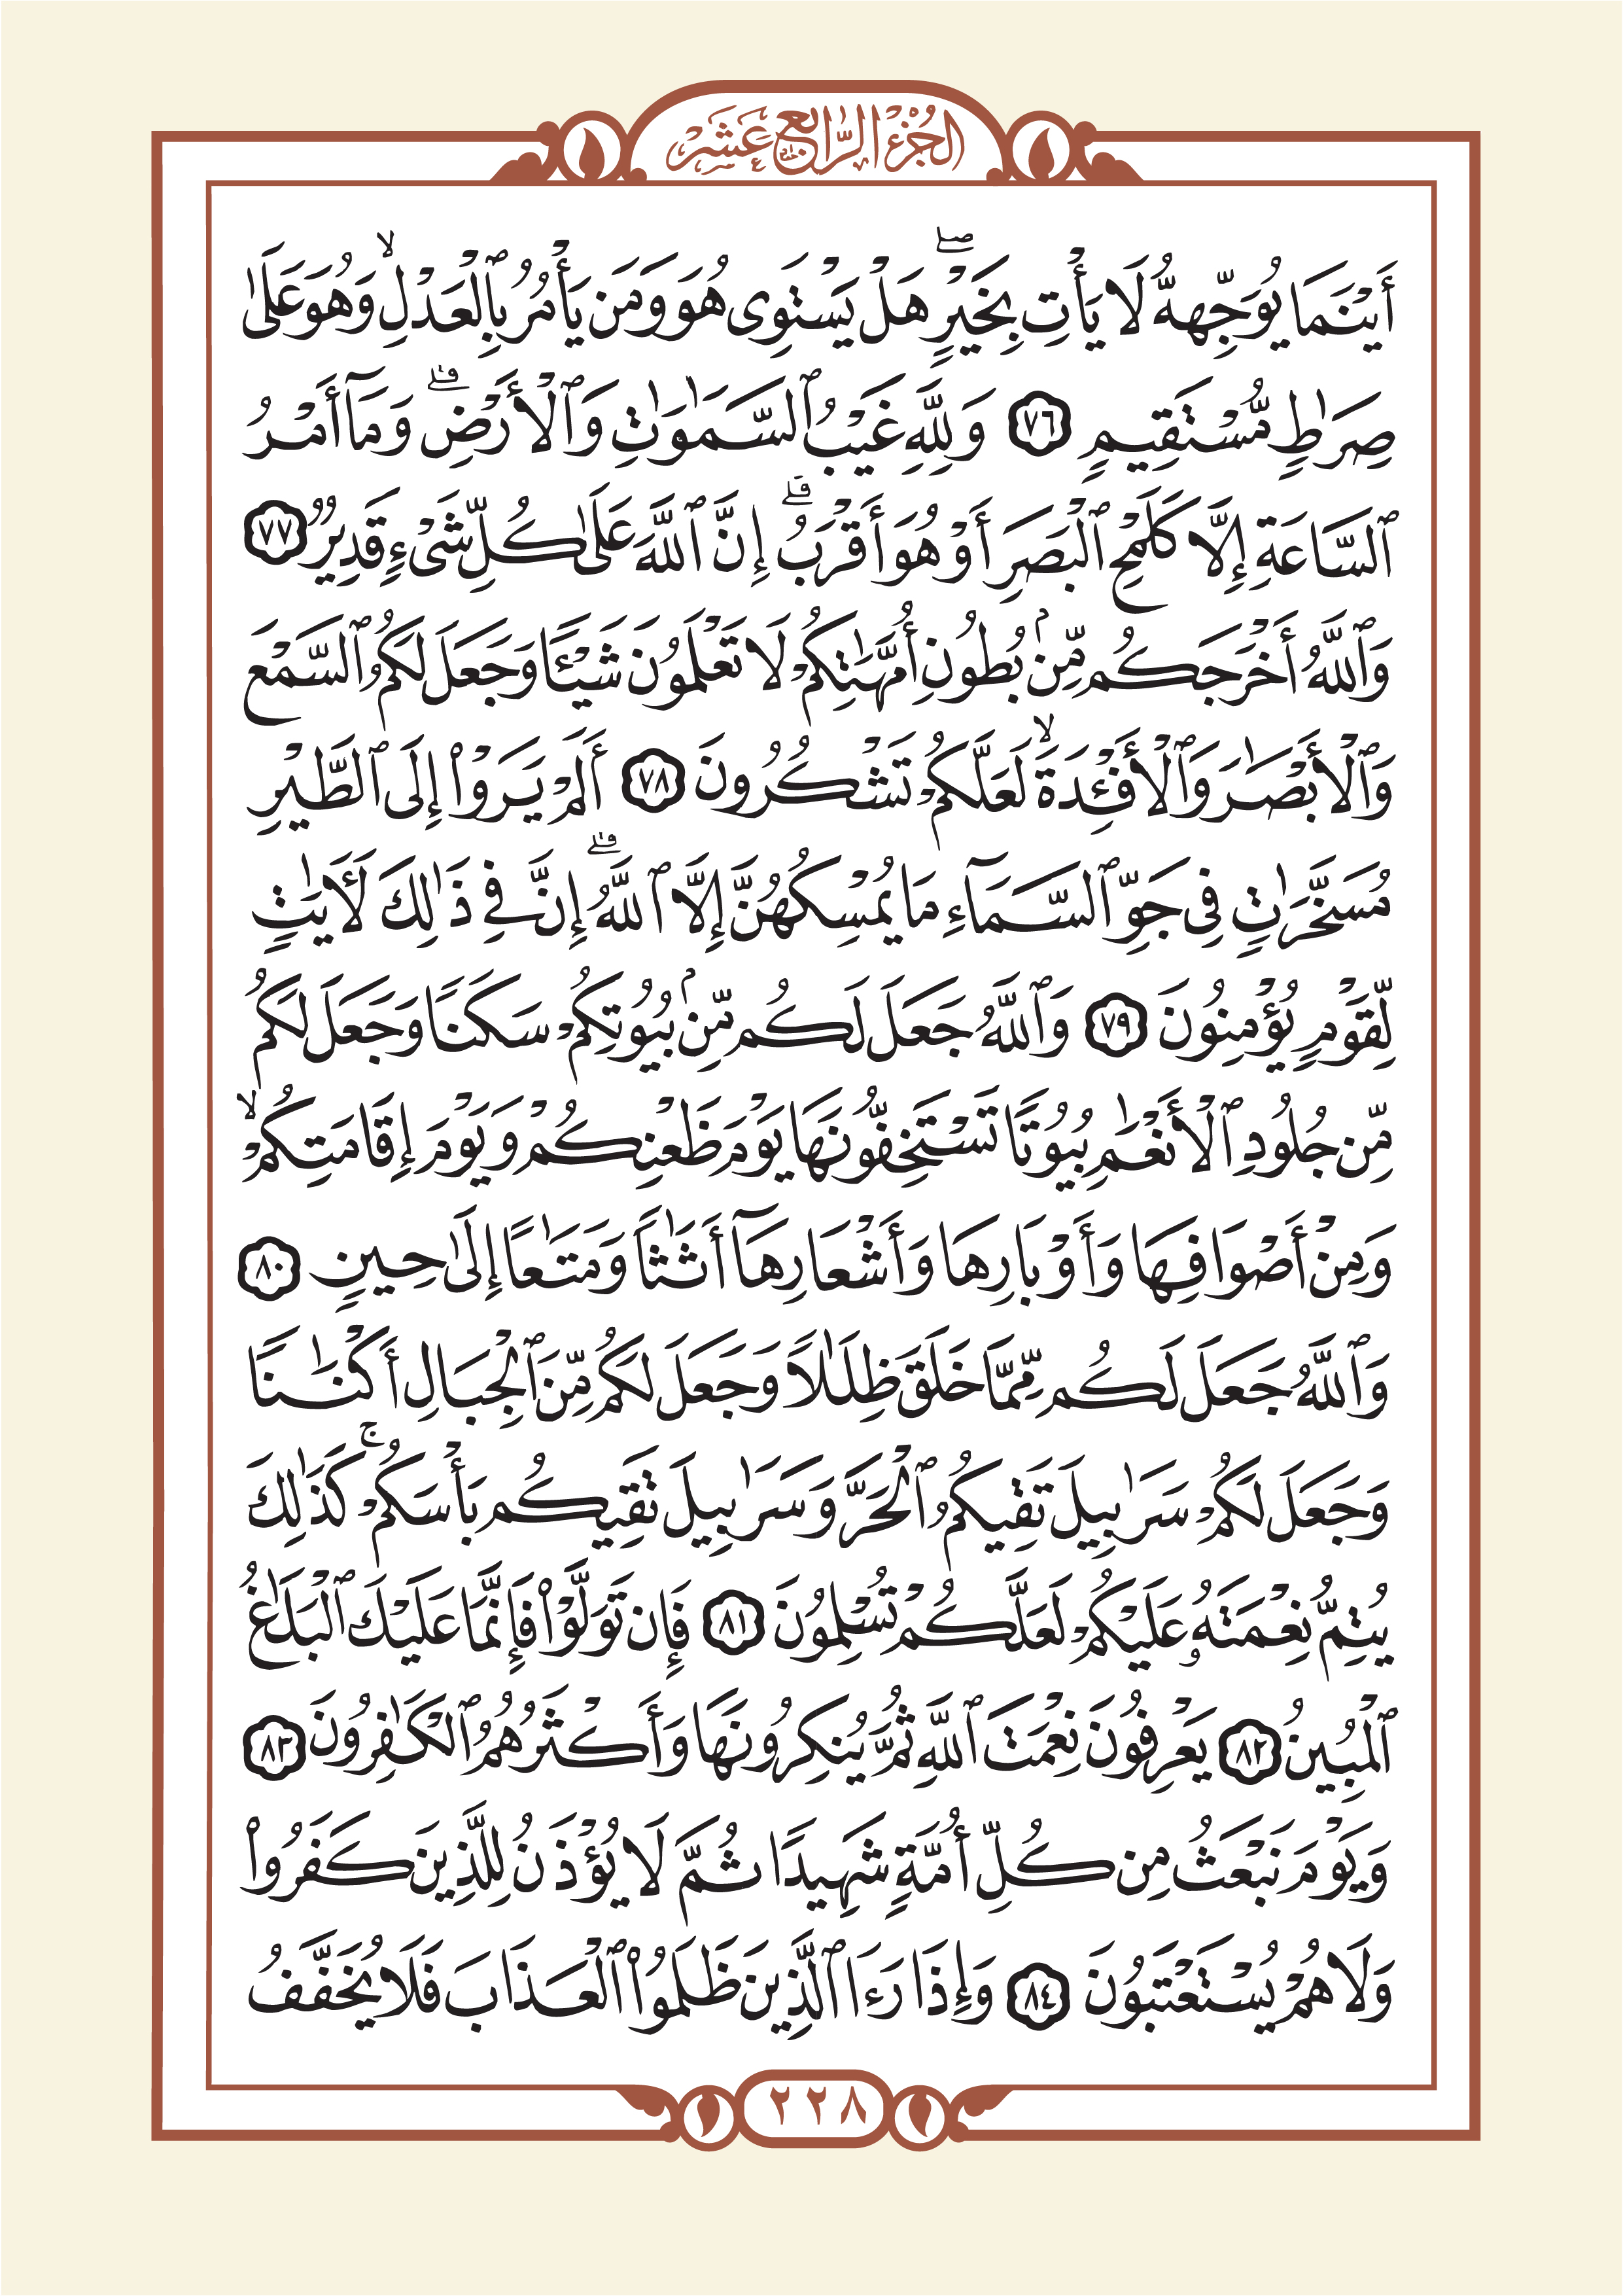 الجزء الرابع عشر
أَيْنَمَا يُوَجِّههُّ لَا يَأْتِ بِخَيْرٍ ۖ هَلْ يَسْتَوِى هُوَ وَمَن يَأْمُرُ بِٱلْعَدْلِ ۙ وَهُوَ عَلَىٰ
صِرَٰطٍ مُّسْتَقِيمٍ ٧٦ وَلِلَّهِ غَيْبُ ٱلسَّمَٰوَٰتِ وَٱلْأَرْضِ ۗ وَمَآ أَمْرُ
ٱلسَّاعَةِ إِلَّا كَلَمْحِ ٱلْبَصَرِ أَوْ هُوَ أَقْرَبُ ۗ إِنَّ ٱللَّهَ عَلَىٰ كُلِّ شَىْءٍ قَدِيرٌ ٧٧
وَٱللَّهُ أَخْرَجَكُم مِّنۢ بُطُونِ أُمَّهَٰتِكُمْ لَا تَعْلَمُونَ شَيْـًٔا وَجَعَلَ لَكُمُ ٱلسَّمْعَ
وَٱلْأَبْصَٰرَ وَٱلْأَفْـِٔدَةَ ۙ لَعَلَّكُمْ تَشْكُرُونَ ٧٨ أَلَمْ يَرَوْا۟ إِلَى ٱلطَّيْرِ
مُسَخَّرَٰتٍ فِى جَوِّ ٱلسَّمَآءِ مَا يُمْسِكُهُنَّ إِلَّا ٱللَّهُ ۗ إِنَّ فِى ذَٰلِكَ لَـَٔايَٰتٍ
لِّقَوْمٍ يُؤْمِنُونَ ٧٩ وَٱللَّهُ جَعَلَ لَكُم مِّنۢ بُيُوتِكُمْ سَكَنًا وَجَعَلَ لَكُم
مِّن جُلُودِ ٱلْأَنْعَٰمِ بُيُوتًا تَسْتَخِفُّونَهَا يَوْمَ ظَعْنِكُمْ وَيَوْمَ إِقَامَتِكُمْ ۙ
وَمِنْ أَصْوَافِهَا وَأَوْبَارِهَا وَأَشْعَارِهَآ أَثَٰثًا وَمَتَٰعًا إِلَىٰ حِينٍ ٨٠
وَٱللَّهُ جَعَلَ لَكُم مِّمَّا خَلَقَ ظِلَٰلًا وَجَعَلَ لَكُم مِّنَ ٱلْجِبَالِ أَكْنَٰنًا
وَجَعَلَ لَكُمْ سَرَٰبِيلَ تَقِيكُمُ ٱلْحَرَّ وَسَرَٰبِيلَ تَقِيكُم بَأْسَكُمْ ۚ كَذَٰلِكَ
يُتِمُّ نِعْمَتَهُۥ عَلَيْكُمْ لَعَلَّكُمْ تُسْلِمُونَ ٨١ فَإِن تَوَلَّوْا۟ فَإِنَّمَا عَلَيْكَ ٱلْبَلَٰغُ
ٱلْمُبِينُ ٨٢ يَعْرِفُونَ نِعْمَتَ ٱللَّهِ ثُمَّ يُنكِرُونَهَا وَأَكْثَرُهُمُ ٱلْكَٰفِرُونَ ٨٣
وَيَوْمَ نَبْعَثُ مِن كُلِّ أُمَّةٍ شَهِيدًا ثُمَّ لَا يُؤْذَنُ لِلَّذِينَ كَفَرُوا۟
وَلَا هُمْ يُسْتَعْتَبُونَ ٨٤ وَإِذَا رَءَا ٱلَّذِينَ ظَلَمُوا۟ ٱلْعَذَابَ فَلَا يُخَفَّفُ
٢٢٨